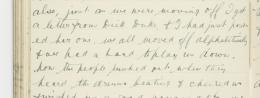 also, just as we were moving off I got
a letter from Dick Duke & I had just posted
ed her one. we all moved off alphabetically
& we had a band to play us down.
how the people rushed out, when they
heard the drums beating & cheered us